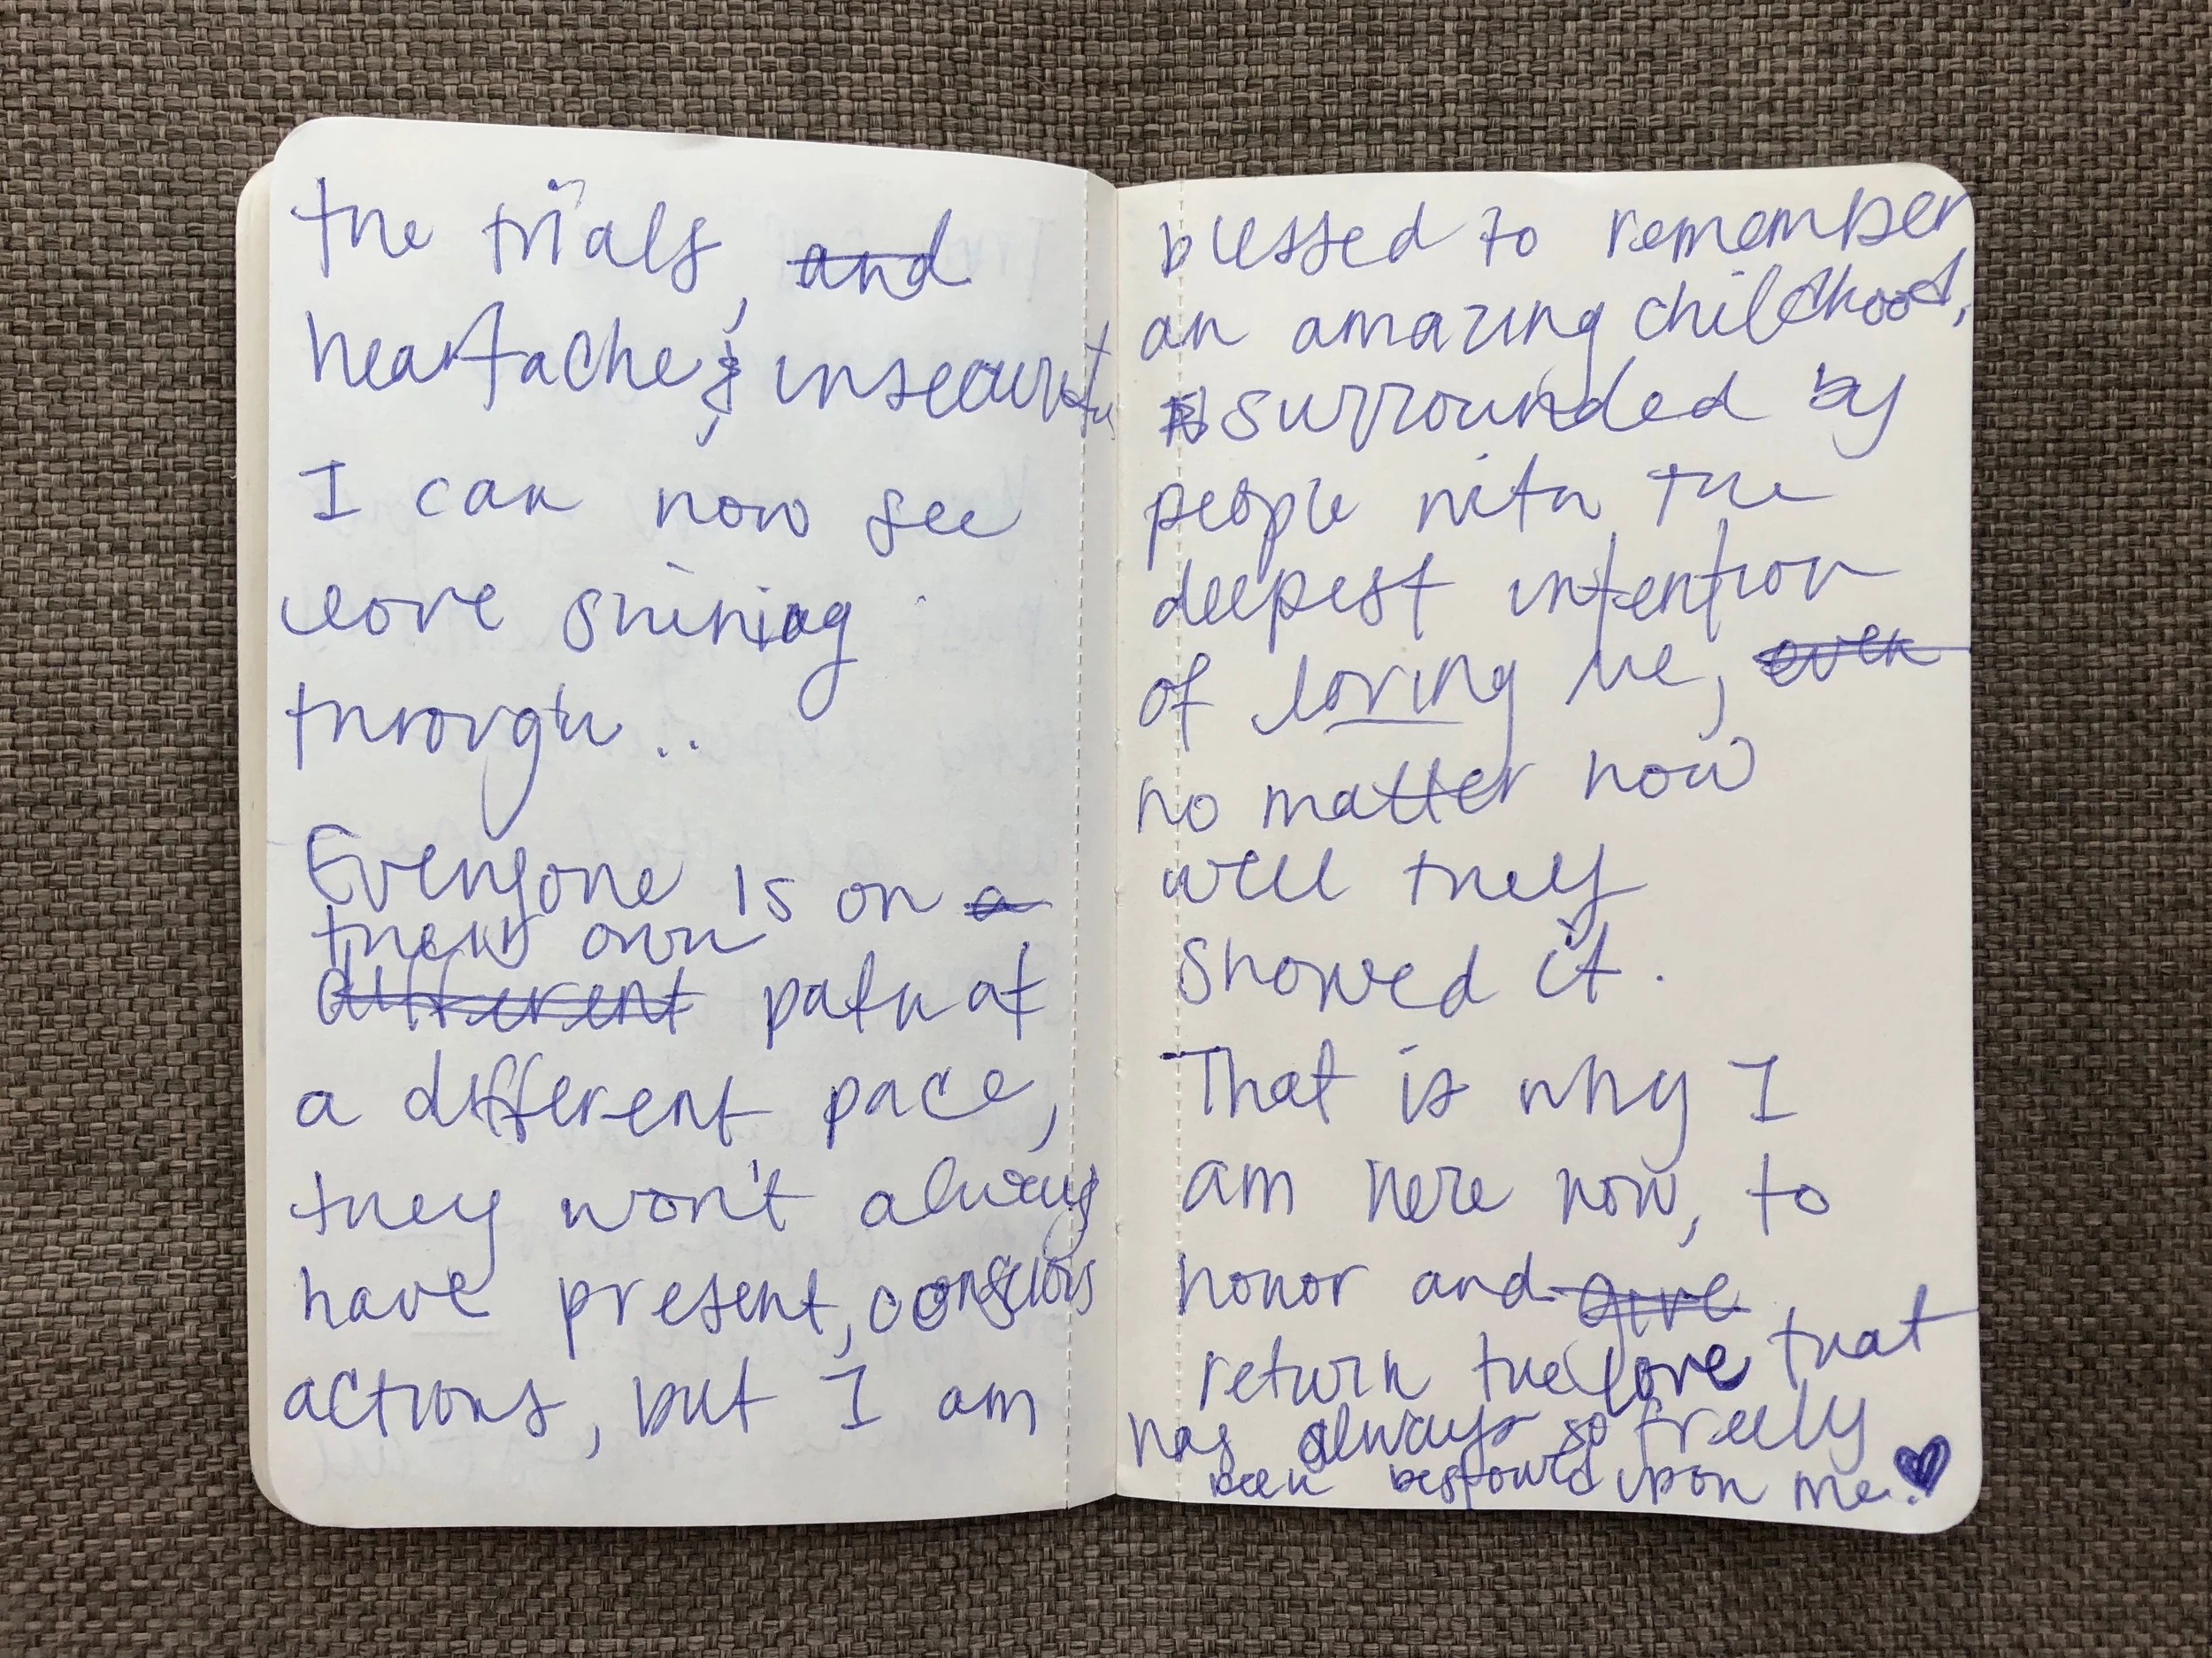 the trials, and
heartache, & insecurity
I can now see
love shining
through..
Everyone is on a
their own
different path at
a different pace,
they won't always
have present, conscious
actions, but I am
blessed to remember
an amazing childhood,
surrounded by
people with the
deepest intention
of loving me, even
no matter how
well they
showed it.
That is why I
am here now, to
honor and give
return the love that
has always so freely
been bestowed upon me.